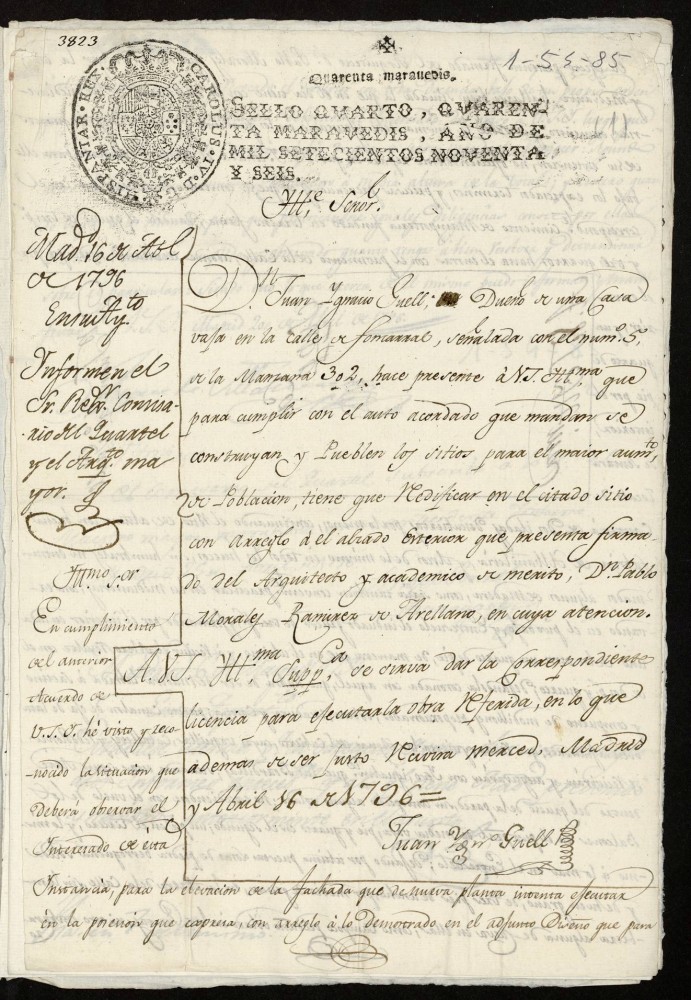 3823
1-53-85
CAROLUS. IV. D. G. HISPANIAR. REX.
Quarenta maravedis.
SELLO QVARTO, QVAREN-
TA MARAVEDIS, AÑO DE
MIL SETECIENTOS NOVENTA
Y SEIS.
Yll.e Señor.
Mad.d 16 de Abl
de 1796
En su Ay.to
Informen el
Sr. Rex.r Comisa-
rio del Quartel
y el Arq.to ma
yor.
D.n Juan Ygnacio Guell, Dueño de una Casa
vaja en la Calle de foncarral, señalada con el num.o 5,
de la Manzana 302, hace presente à V.S. Yll.ma que
para cumplir con el auto acordado que mandan se
construyan y Pueblen los sitios para el maior aum.to
de Poblacion, tiene que Redificar en el citado sitio
con arreglo à el alzado exterior que presenta firma-
do del Arquitecto y academico de merito, D.n Pablo
Morales Ramirez de Arellano, en cuya atencion.
A. V.S. Yll.ma Supp.ca se sirva dar la Correspondiente
licencia para ejecutar la obra Referida, en lo que
ademas de ser justo Recivira merced, Madrid
y Abril 16 de 1796=
Juan Yg.no Guell
Yllmo Sor
En cumplimiento
del anterior
Acuerdo de
V.S.Y. hè visto y reco-
nocido la situacion que
deberà observar el
Interesado de èsta
Instancia, para la elevacion de la fachada que de nueva planta intenta ejecutar
en la posesion que expresa, con arreglo à lo Demostrado en el adjunto Diseño que para